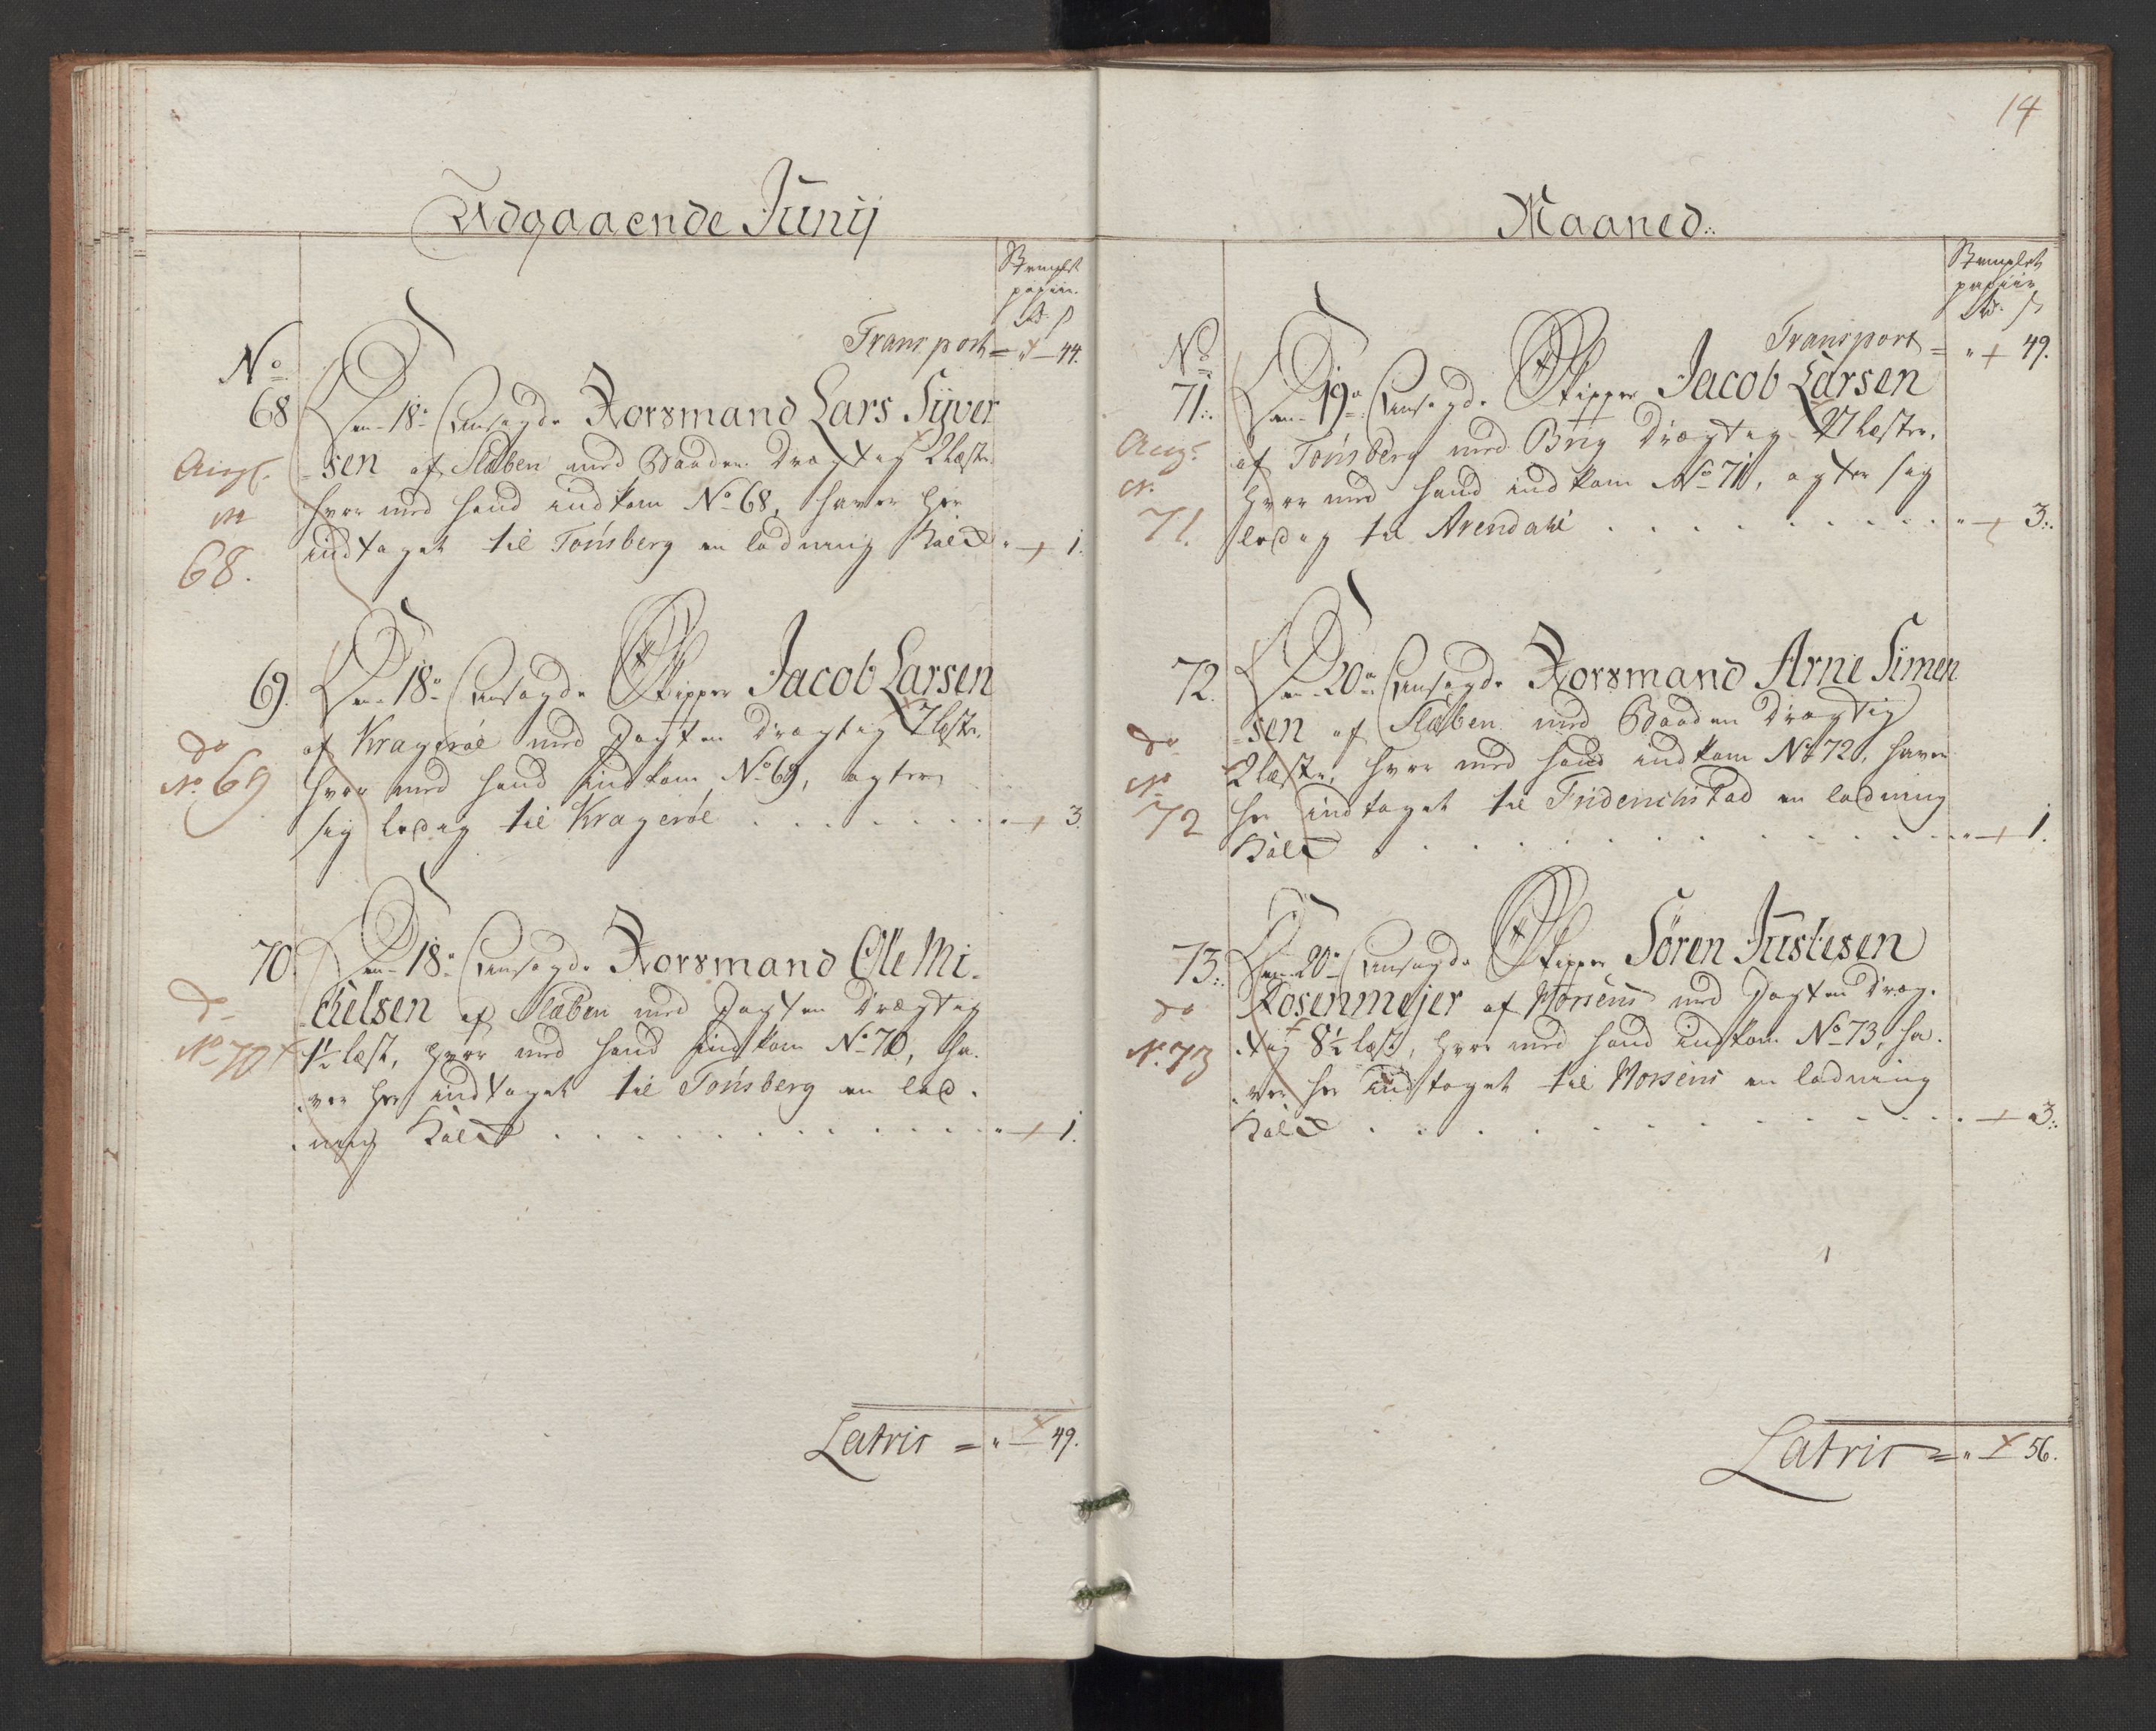 Udgaaende Junij
Stemplt
papiir.
Rd. ß
Transport = " — 44.
No
68 Den 18de Ansagde Norsmand Lars Syver
Ang.
sen af Slæben med Baaden Drægtig 2 læster
hvor med hand indkom No 68, haver her
68.
indtaget til Tønsberg en ladning Kald " — 1.
69. Den 18de Ansagde Skipper Jacob Larsen
af Kragerøe med Jagten Drægtig 7 læster,
do
No 69
hvor med hand indkom No 69, agter
sig ledig til Kragerøe . . . . . . . " — 3.
70. Den 18de Ansagde Norsmand Ole Mi-
chelsen af Slæben med Jagten Drægtig
do
No 70
1½ læst, hvor med hand indkom No 70, ha-
ver her indtaget til Tønsberg en lad-
ning Kald . . . . . . . . . . " — 1.
Latris = " — 49.
14
Maaned.
Stemplet
papiir
Rd. ß
Transport = " — 49.
No
71. Den 19de Ansagde Skipper Jacob Larsen
Ang.
af Tønsberg med Brig Drægtig 27 læster,
N.
hvor med hand indkom No 71, agter sig
71.
ledig til Arendahl . . . . . . . . " — 3.
72. Den 20de Ansagde Norsmand Arne Simen
sen af Slæben med Baaden Drægtig
do
No
2 læster, hvor med hand indkom No 72, haver
72
her indtaget til Friderichstad en ladning
Kald . . . . . . . . . . . " — 1.
73. Den 20de Ansagde Skipper Søren Justesen
do
Rosenmejer af Horsens med Jagten Dræg-
No 73
tig 8½ læst, hvor med hand indkom No 73, ha-
ver her indtaget til Horsens en ladning
Kald . . . . . . . . . . . — 3.
Latris = " — 56.